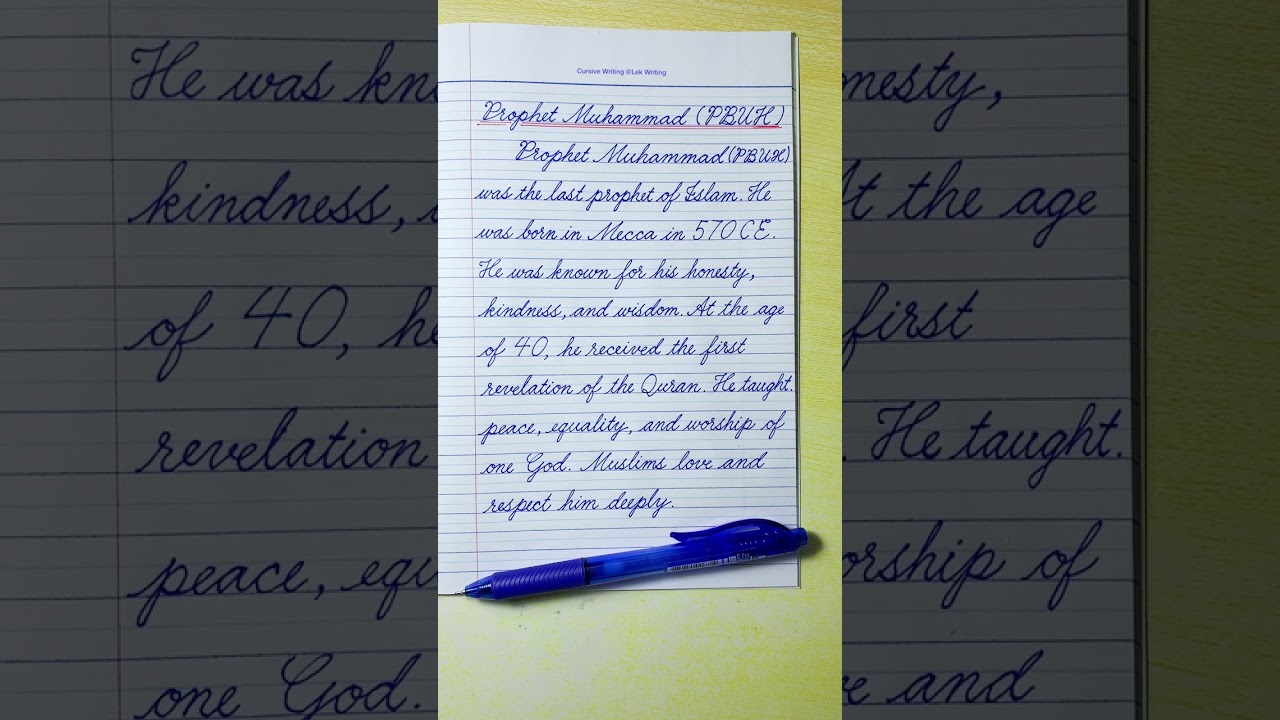 Cursive Writing @Lek Writing
Prophet Muhammad (PBUH)
Prophet Muhammad (PBUH)
was the last prophet of Islam. He
was born in Mecca in 570 CE.
He was known for his honesty,
kindness, and wisdom. At the age
of 40, he received the first
revelation of the Quran. He taught.
peace, equality, and worship of
one God. Muslims love and
respect him deeply.